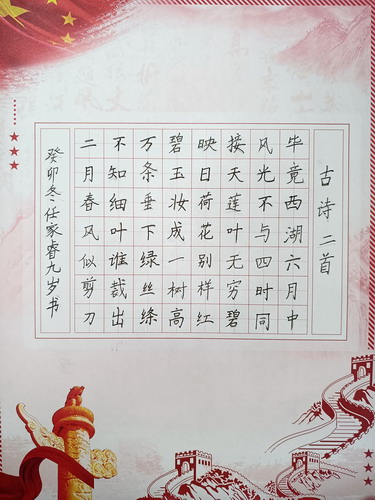 古诗二首
毕竟西湖六月中
风光不与四时同
接天莲叶无穷碧
映日荷花别样红
碧玉妆成一树高
万条垂下绿丝绦
不知细叶谁裁出
二月春风似剪刀
癸卯冬任家睿九岁书